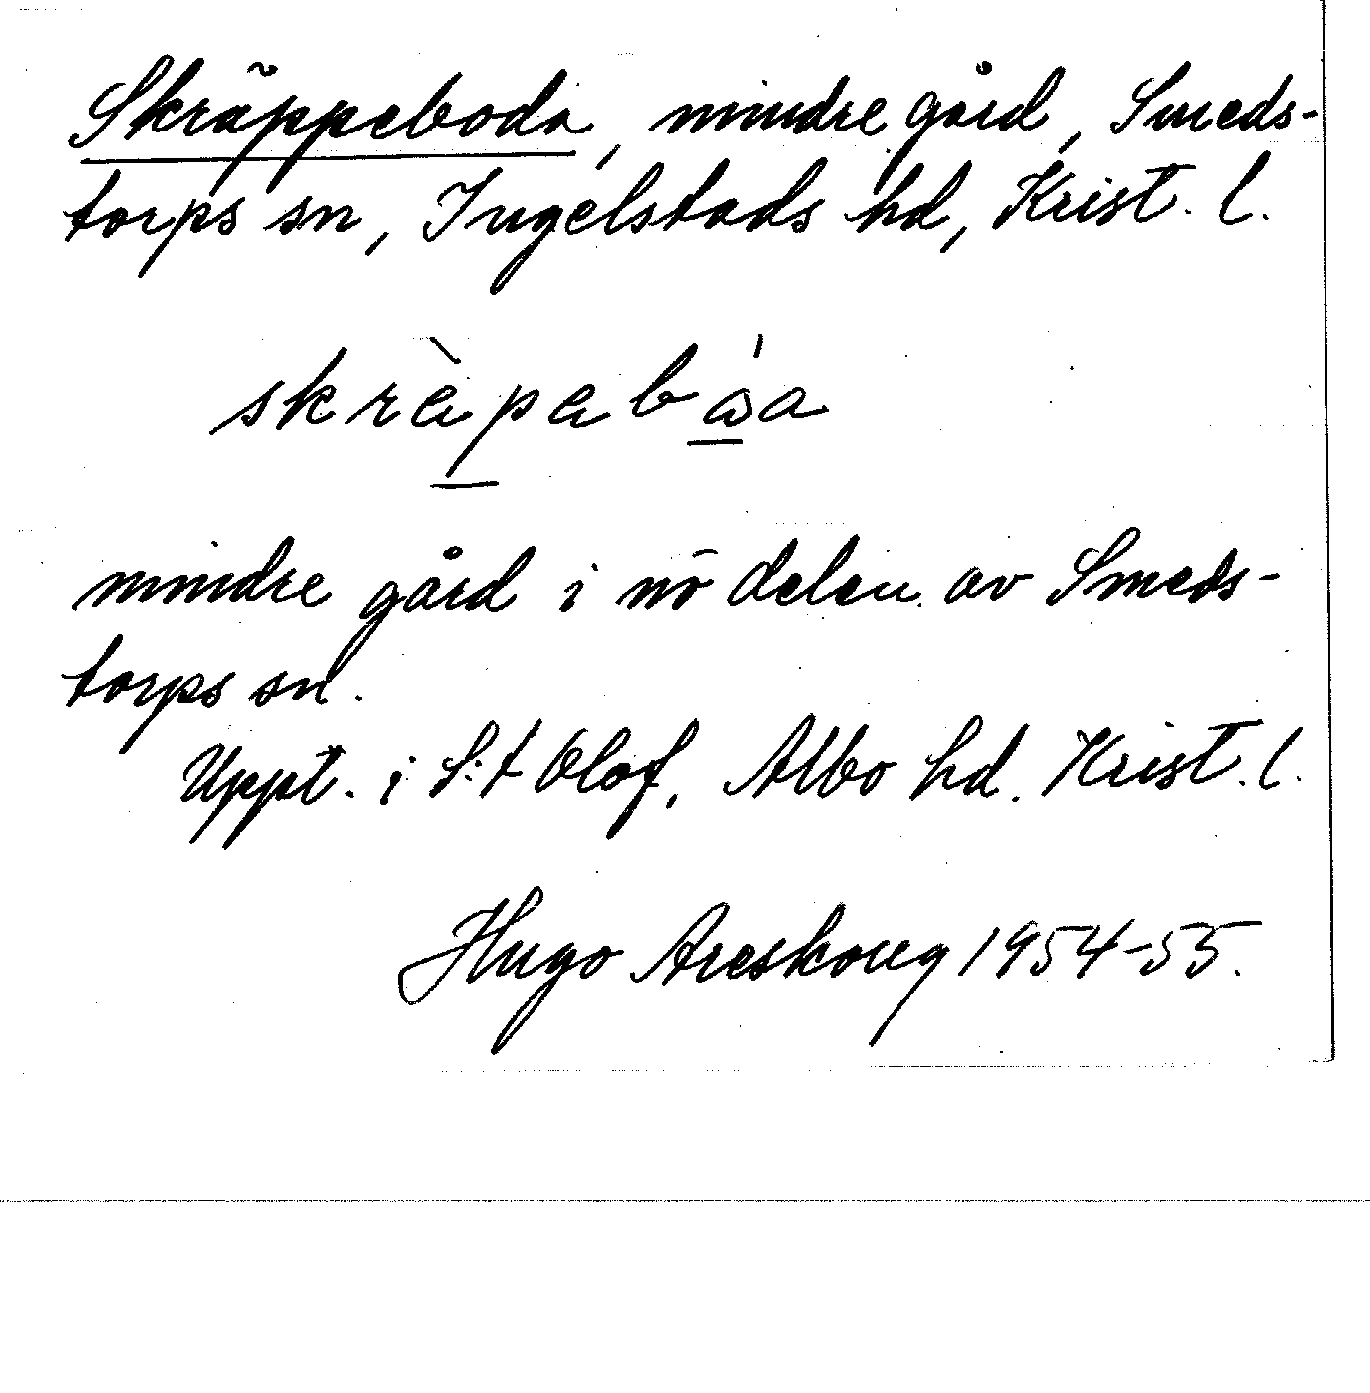 Skräppeboda, mindre gård, Smeds-
torps sn, Ingelstads hd, Krist. l.
skræ̀pabåa
mindre gård i nö delen av Smeds-
torps sn.
Uppt. i S:t Olof, Albo hd. Krist. l.
Hugo Areskoug 1954-55.